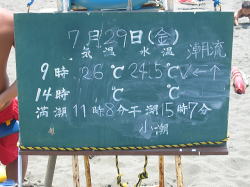 7月29日(金)
気温 水温 潮流
9時 26℃ 24.5℃ ✓←↑
14時 ℃ ℃
満潮11時8分干潮15時7分
小潮